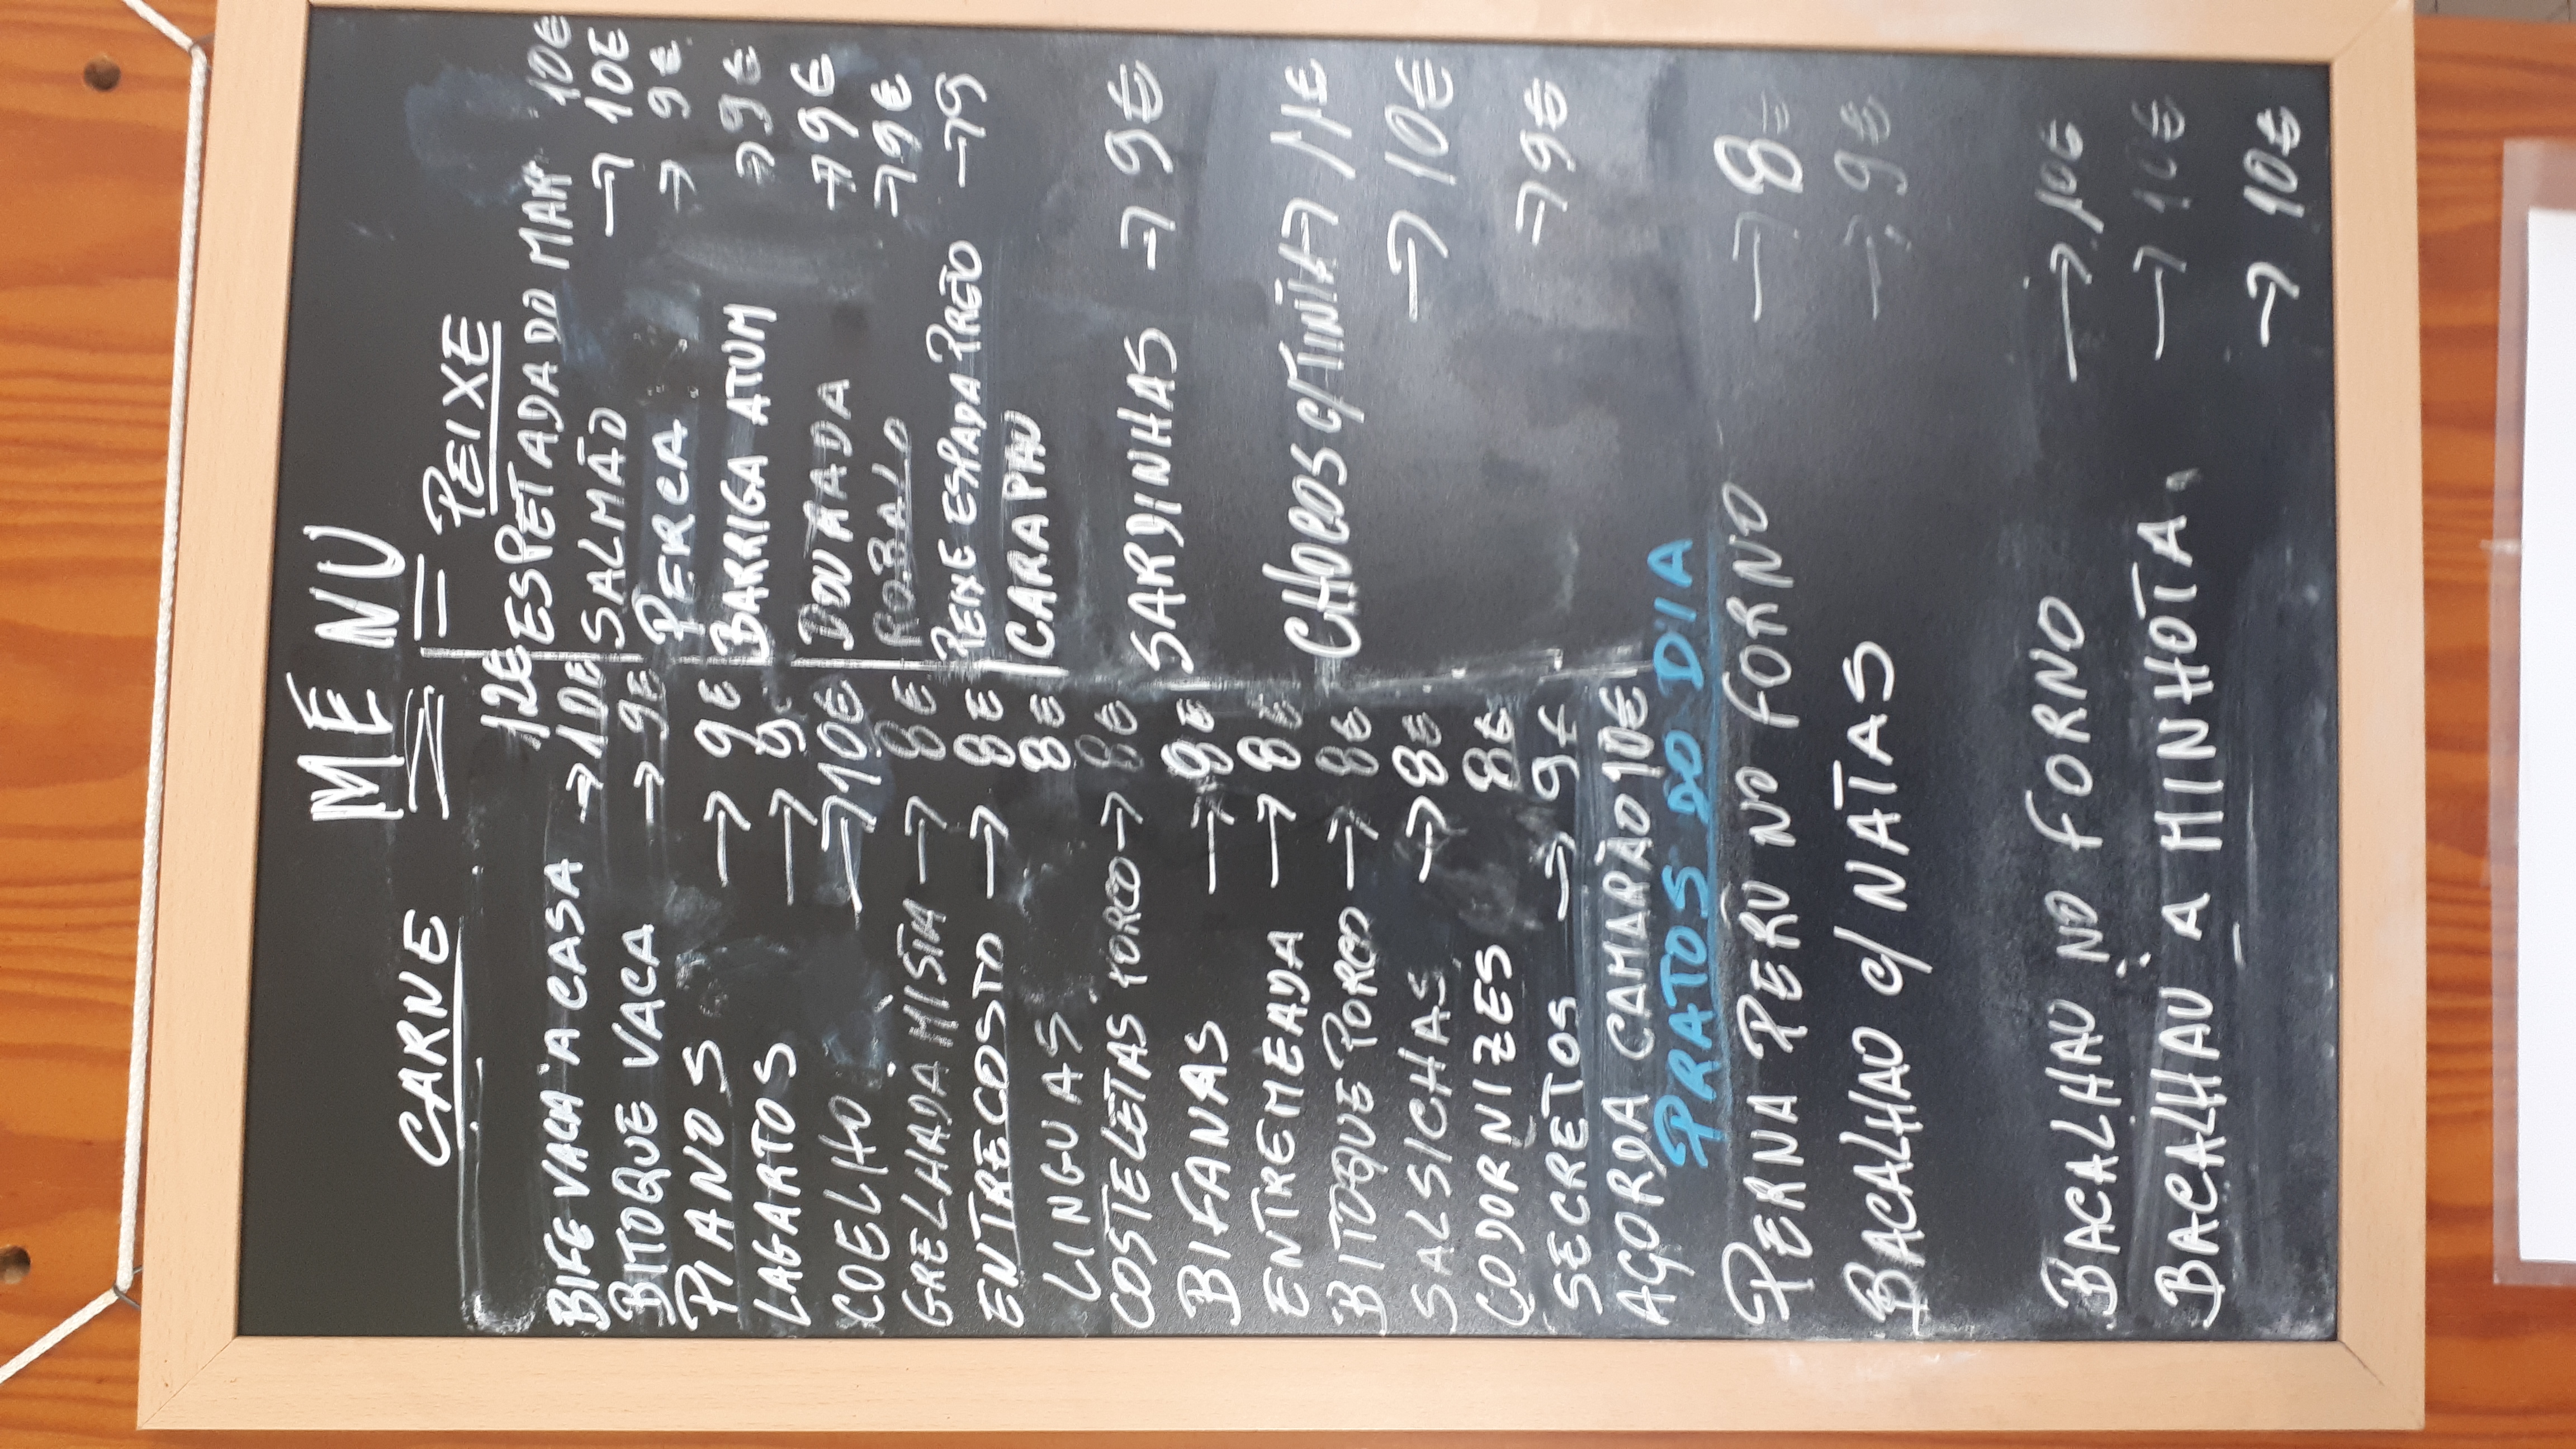 MENU
CARNE
12€
BIFE VACA A CASA → 10€
BITOQUE VACA → 9€
PIANOS → 9€
LAGARTOS → 9
COELHO → 10€
GRELHADA MISTA → 8€
ENTRECOSTO → 8€
LINGUAS 8€
COSTELETAS PORCO → 8€
BIFANAS → 8€
ENTREMEADA → 8€
BITOQUE PORCO → 8€
SALSICHAS → 8€
CODORNIZES 8€
SECRETOS → 9€
AÇORDA CAMARÃO 10€
PEIXE
ESPETADA DO MAR 10€
SALMÃO → 10€
PERCA → 9€
BARRIGA ATUM → 9€
DOURADA → 9€
ROBALO → 9€
PEIXE ESPADA PRETO → 9
CARAPAU
SARDINHAS → 9€
CHOCOS C/TINTA → 11€
→ 10€
→ 9€
PRATOS DO DIA
PERNA PERU NO FORNO → 8€
BACALHAU C/ NATAS → 9€
BACALHAU NO FORNO → 10€
BACALHAU A MINHOTA → 10€
→ 10€